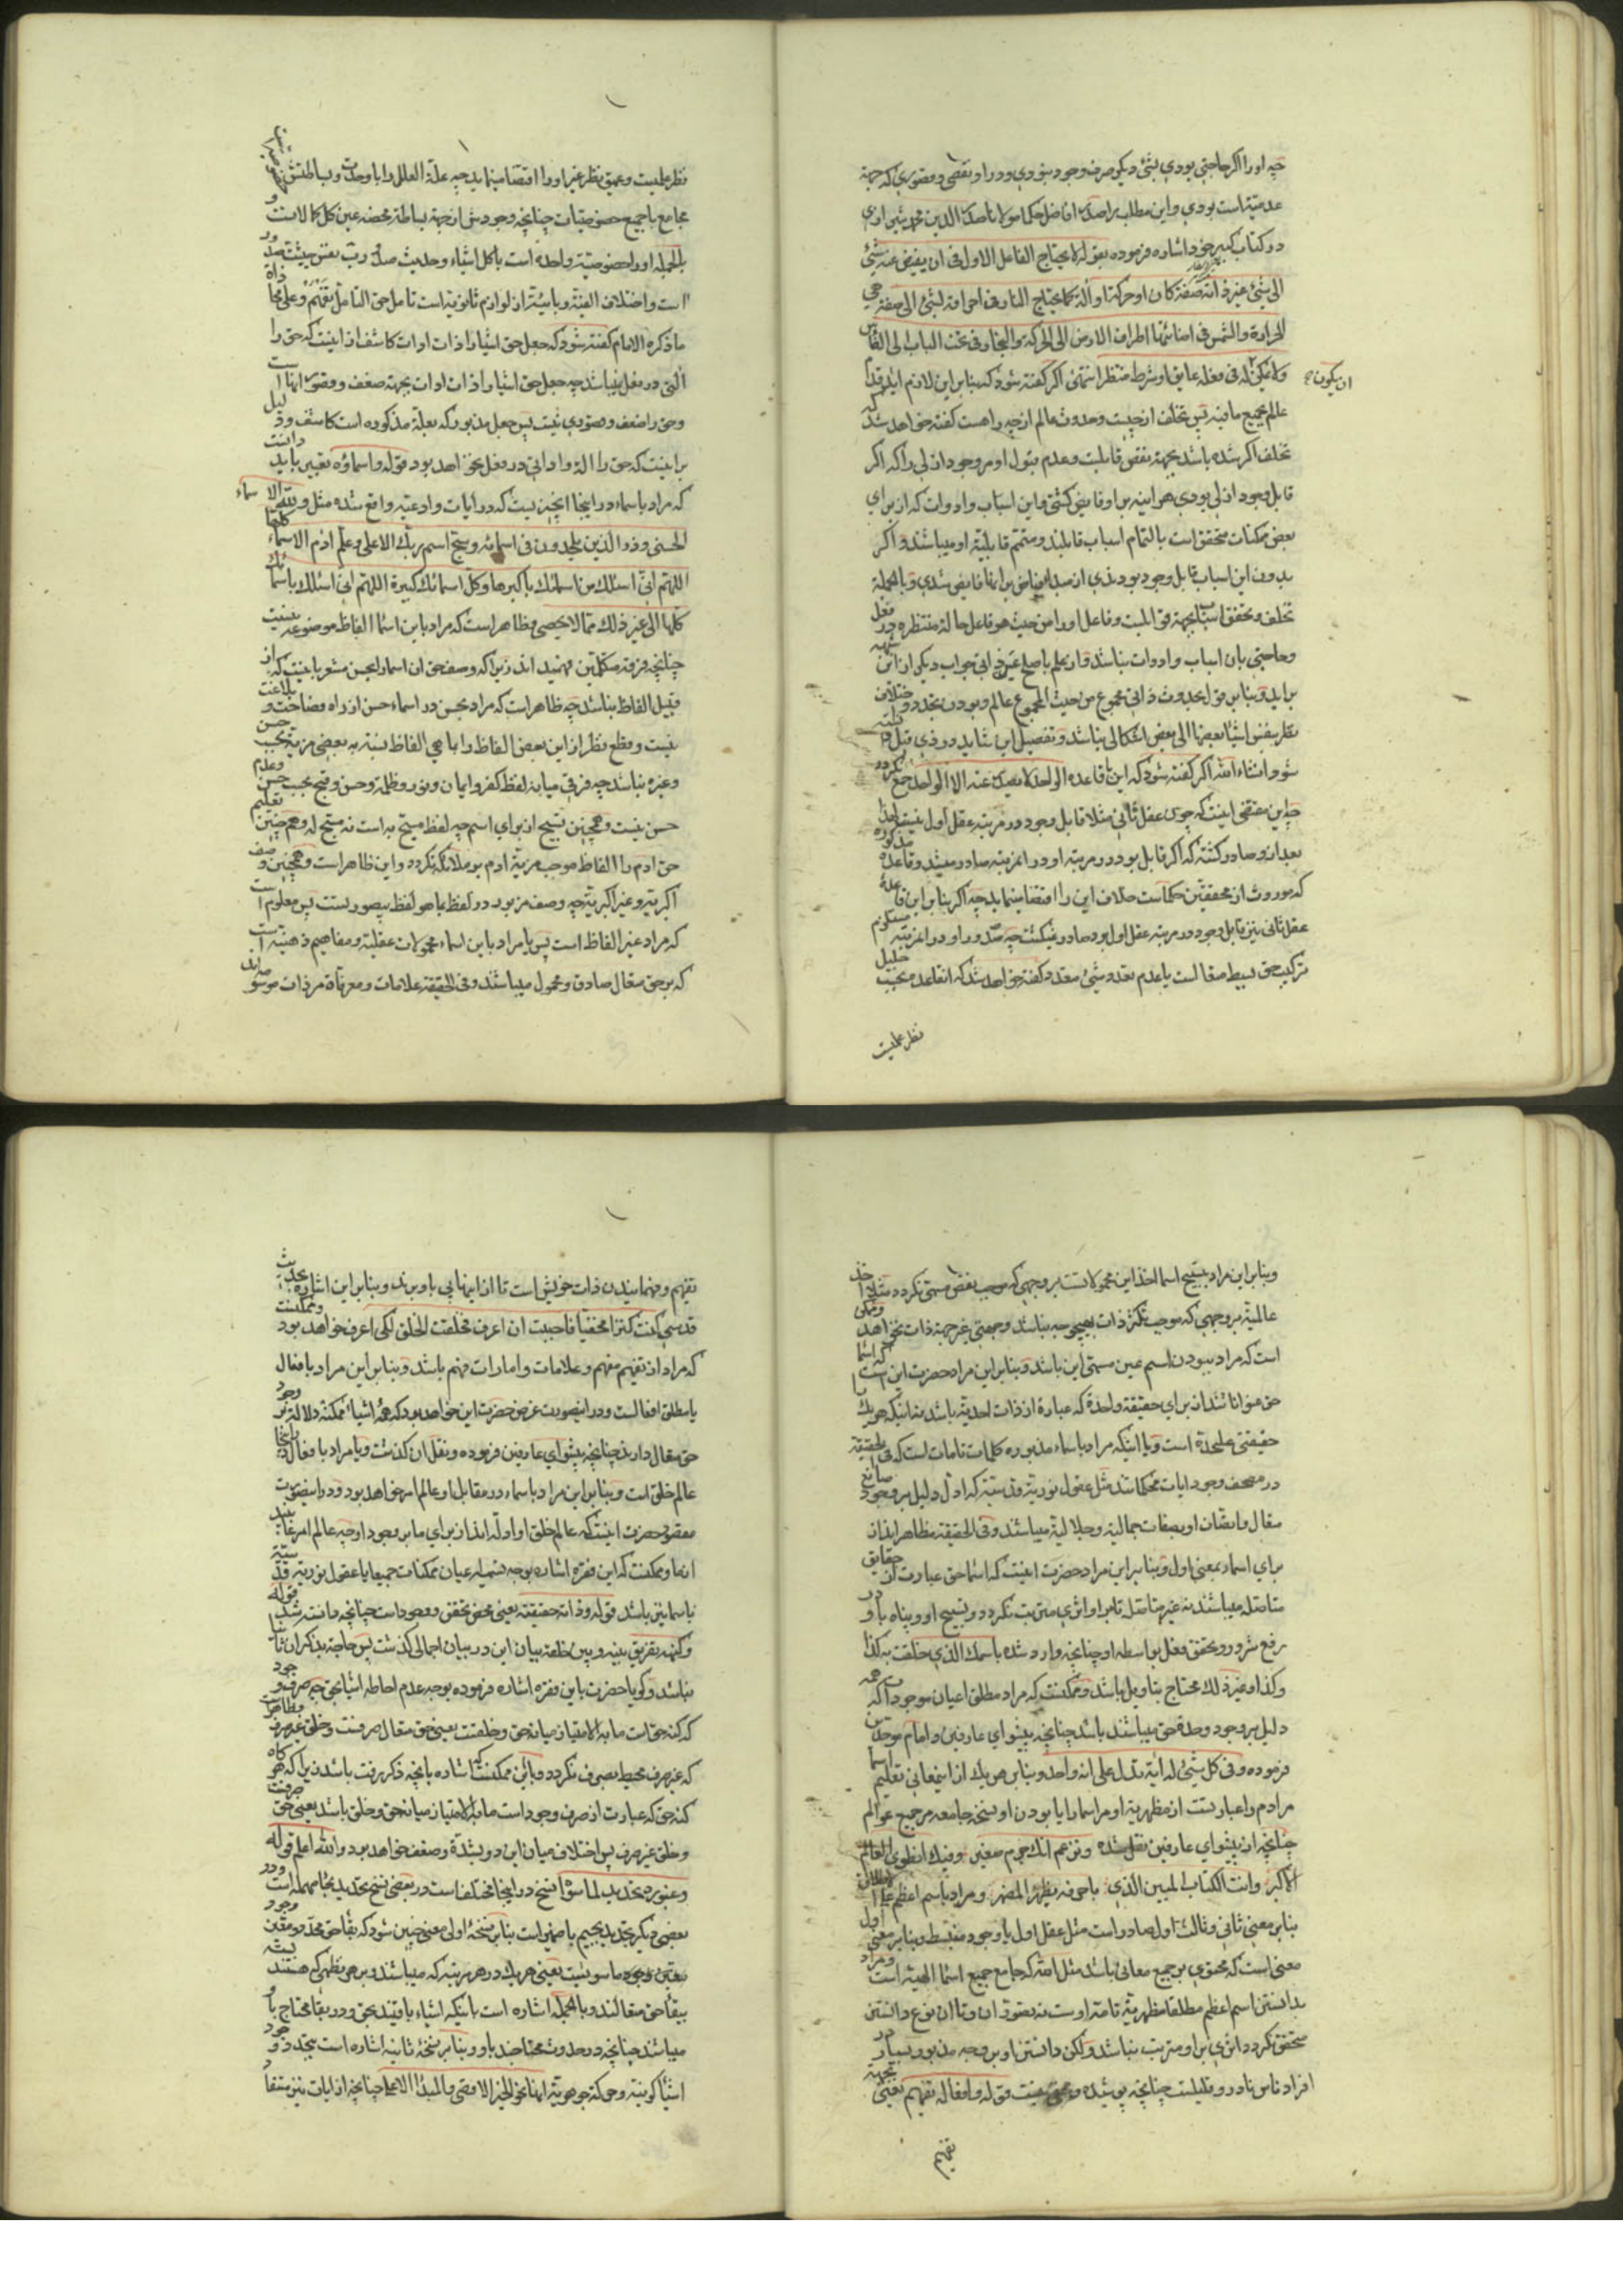 چه او را اگر حاجتی بودی بشئ دیگر صرف وجود نبودی و در او نقصی و قصوری که جهة
عدمیتست بودی و این مطلب را صدر افاضل حکما مولانا صدر الدین محمد شیرازی
در کتاب کبیر خود اشاره فرموده بقوله لا یحتاج الفاعل الاول فی ان یفیض عنه شئ
الی شئ غیر ذاته صفة کان او حرکة او آلة کما یحتاج النار فی احراقه لشئ الی صفة هی
الحرارة والشمس فی اضائتها اطراف الارض الی الحرکة والنجار فی نحت الباب الی الفاس
ولا یمکن له فی فعله عایق او شرط منتظر انتهی اگر گفته شود که بنابر این لازم آید قدم
ان یکون
عالم بجمیع ما فیه پس تخلف از چیست و حدوث عالم از چه راهست گفته خواهد شد که
تخلف اگر شده باشد بجهة نقص قابلیت و عدم قبول او مر وجود ازلی را که اگر
قابل وجود ازلی بودی هر اینه بر او فایض گشتی و این اسباب و ادوات که از برای
بعض ممکنات محقق است بالتمام اسباب قابلند و متمم قابلیة او میباشند و اگر
بدون این اسباب قابل وجود بودندی از مبدأ فیاض بر انها فایض شدی و بالجمله
تخلف و تحقق اسباب بجهة قوابلست و فاعل او را من حیث هو فاعل حالة منتظره در فعل
و حاجتی بان اسباب و ادوات نباشد
براید و بنابر قول بحدوث ذاتی مجموع من حیث المجموع عالم و بودن تجدد و اختلاف
نظر بنفس اشیا بعضها الی بعض اشکالی نباشد و تفصیل این شاید در ذی قبل
شود انشاء الله اگر گفته شود که این با قاعده الواحد لا یصدر عنه الا الواحد جمع نگردد
چه این مقتضی اینست که چون عقل ثانی مثلا قابل وجود در مرتبه عقل اول نیست لهذا
بعد از او صادر گشته که اگر قابل بود در مرتبه او در ان مرتبه صادر میشد و قاعده مذکوره
که موروث از محققین حکماست خلاف این را اقتضا مینماید چه اگر بنابر این قاعدة
عقل ثانی نیز قابل وجود در مرتبه عقل اول بود صادر نمیگشت چه صدور او در ان مرتبه مستلزم
ترکیب حق بسیط متعالست یا عدم تعدد شئ متعدد و گفته خواهد شد که انقاعده بحسب جلیل
نظر علمیت
نظر علمیت و عمیق نظر غیر او را اقتضا مینماید چه علة العلل را با وحدت و بساطتش
مجامع با جمیع خصوصیات چنانچه وجودش از جهة بساطة محضه عین کل کمالاتست و
بالجمله او را خصوصیة واحده است با کل اشیاء وحدیث صدور رب نفس حیثیت ذاة
است و اختلاف الفیتة و بائیة از لوازم ثانویه است تامل حق التامل تفهم وعلی ما
ما ذکره الامام گفته شود که جعل حق اشیا را ذات ادوات کاشف از اینست که حق را
التی در فعل نباشد چه جعل حق اشیا را ذات ادوات بجهة ضعف و قصور انها است
و حق را ضعف و قصوری نیست پس جعل مذبور که بعلة مذکوره است کاشف و دلیل
بر اینست که حق را الة و اداتی در فعل نخواهد بود قوله واسماؤه تعبیر باید دانست
که مراد باسماء در اینجا انچیز نیست که در ایات و ادعیه واقع شده مثل ولله الاسماء
الحسنی وذر الذین یلحدون فی اسمائه وسبح اسم ربک الاعلی وعلم ادم الاسماء کلها
اللهم انی اسئلک من اسمائک باکبرها وکل اسمائک کبیرة اللهم انی اسئلک باسمائک
کلها الی غیر ذلک مما لا یحصی و ظاهر است که مراد باین اسما الفاظ موضوعه نیست
چنانچه فرقه متکلمین فهمید اند زیرا که وصف حق ان اسما را بحسن مشعر باینست که از
قبیل الفاظ نباشد چه ظاهر است که مراد بحسن در اسماء حسن از راه فصاحت و بلاغت
نیست و قطع نظر از این بعض الفاظ را با هی الفاظ نسبة به بعضی مزیة بحسب حسن
و غیره نباشد چه فرقی میانه لفظ کفر و ایمان و نور و ظلمة و حسن و قبح بحسب حسن و عدم
حسن نیست و همچنین تسبیح از برای اسم چه لفظ مسبح به است نه مسبح له و همچنین تعلیم
حق ادم را الفاظ موجب مزیة ادم بر ملائکه نگردد و این ظاهر است و همچنین وصف
اکبریة و غیر اکبریة چه وصف مزبور در لفظ بما هو لفظ بیصورتست پس معلوم است
که مراد غیر الفاظ است پس یا مراد باین اسماء محمولات عقلیة و مفاهیم ذهنیة است
که بر حق متعال صادق و محمول میباشند و فی الحقیقة علامات و معرفاة مر ذات موسو
و بنابر این مراد بتسبیح اسما اخذ این محمولاتست بر وجهی که موجب نقص مسمی نگردد مثلا اخذ
عالمیة بر وجهی که موجب تکثر ذات بهیچوجه نباشد و جهتی غیر جهة ذات نخواهد و ممکن
است که مراد ببودن اسم عین مسمی این باشد و بنابر این مراد حضرت این است که اسما
حق عنواناتند از برای حقیقة واحدة که عبارة از ذات احدیة باشد نه اینکه هر یک
حقیقتی علیحدة است و یا اینکه مراد باسماء مذبوره کلمات تامات است که فی الحقیقة
در مصحف وجود ایات محکماتند مثل عقول نوریة قدسیة که ادل دلیل بر وجود صانع
متعال و اتصاف او بصفات جمالیة و جلالیة میباشند و فی الحقیقة مظاهر اند از
برای اسماء بمعنی اول و بنابر این مراد حضرت اینست که اسما حق عبارت از حقایق
متاصله میباشند نه غیر متاصل تا بر او اثری مترتب نگردد و تسبیح او و پناه باو در
رفع شرور و تحقق فعل بواسطه او چنانچه وارد شده باسمک الذی خلقت به کذا
وکذا وغیر ذلک محتاج بتاویل باشد و ممکنست که مراد مطلق اعیان موجوده که همه
دلیل بر وجود وحدة حق میباشند باشد چنانچه پیشوای عارفین و امام موحدین
فرموده وفی کل شئ له آیة تدل علی انه واحد و بنابر هر یک از این معانی تعلیم اسما
مر ادم را عبارتست از مظهریة او مر اسما را یا بودن او نسخه جامعه مر جمیع عوالم
چنانچه از پیشوای عارفین نقل شده وتزعم انک جرم صغیر وفیک انطوی العالم
الاکبر وانت الکتاب المبین الذی باحرفه یظهر المضمر و مراد باسم اعظم
بنابر معنی ثانی و ثالث اول صادر است مثل عقل اول یا وجود منبسط و بنابر معنی اول
معنی است که محتوی بر جمیع معانی باشد مثل الله که جامع جمیع اسما الهیه است و مراد
بدانستن اسم اعظم مطلقا مظهریة تامة اوست نه تصور ان و تا ان نوع دانستن
متحقق نگردد اثری بر او مترتب نباشد ولکن دانستن او بر وجه مذبور بسیار در
افراد ناس نادر و قلیلست چنانچه پوشیده و مخفی نیست قوله وافعاله تفهیم یعنی بجهة
تفهیم
تفهیم و فهمانیدن ذات خویش است تا از اینها پی باو برند و بنابر این اشاره بحدیث
قدسی کنت کنزا مخفیا فاحببت ان اعرف فخلقت الخلق لکی اعرف خواهد بود و ممکنست
که مراد از تفهیم مفهم و علامات و امارات فهم باشد و بنابر این مراد بافعال
یا مطلق افعالست و در اینصورت غرض حضرت این خواهد بود که همه اشیاء ممکنة دلالة بر وجود
حق متعال دارند چنانچه پیشوای عارفین فرموده و نقل ان گذشت و یا مراد بافعال در اینجا
عالم خلق است و بنابر این مراد باسماء در مقابل او عالم امر خواهد بود و در اینصورت
مقصود حضرت اینست که عالم خلق او ادله اند از برای ما بر وجود او چه عالم امر غایبند
از ما و ممکنست که این فقره اشاره بوجه تسمیه اعیان ممکنات جمیعا یا عقول نوریة قدسیة
باسما نیز باشد قوله وذاته حقیقة یعنی محض تحقق و وجود است چنانچه دانسته شد قوله
وکنهه تفریق بینه وبین خلقه بیان این در بیان اجمالی گذشت پس حاجة بذکر ان ثانیا
نباشد و گویا حضرت باین فقره اشاره فرموده بوجه عدم احاطه اشیا بحق چه صرف وجود
که کنه حق است ما به الامتیاز میانه حق و خلقست یعنی حق متعال صرفست و خلق غیر صرف
که غیر صرف محیط بصرف نگردد و باین ممکنست که اشاره بانچه ذکر رفت باشد زیرا که هر گاه
کنه حق که عبارت از صرف وجود است ما به الامتیاز میانه حق و خلق باشد یعنی حق صرفست
و خلق غیر صرف پس اختلاف میان این دو بشدة و ضعف خواهد بود والله اعلم قوله
وغیوره تحدید لما سواه نسخ در اینجا مختلف است در بعضی نسخ تحدید بحا مهمله است و در
بعضی دیگر تجدید بجیم باصغیر است بنابر نسخه اولی معنی چنین شود که بقا حق محدد و معین وجود
بتعین وجود ما سویست یعنی هر یک در هر مرتبه که میباشند و بر هر نظمی که هستند
ببقا حق متعالند و بالجمله اشاره است باینکه اشیاء باقیند بحق و در بقا محتاج باو
میباشند چنانچه در حدوث محتاجند باو و بنابر نسخه ثانیه اشاره است بتجدد وجود
اشیأ کونیة و حرکة جوهریة انها نحو الخیر الاقصی والمبدأ الاعلی چنانچه از ایات نیز مستفا